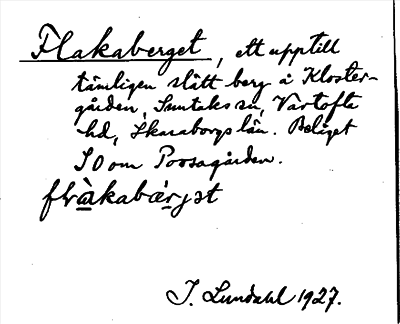 Flakaberget, ett upptill
tämligen slätt berg å Kloster-
gården, Suntaks sn, Vartofta
hd, Skaraborgs län. Beläget
SO om Possagården.
flràkabæ̀rjət
J. Lundahl 1927.